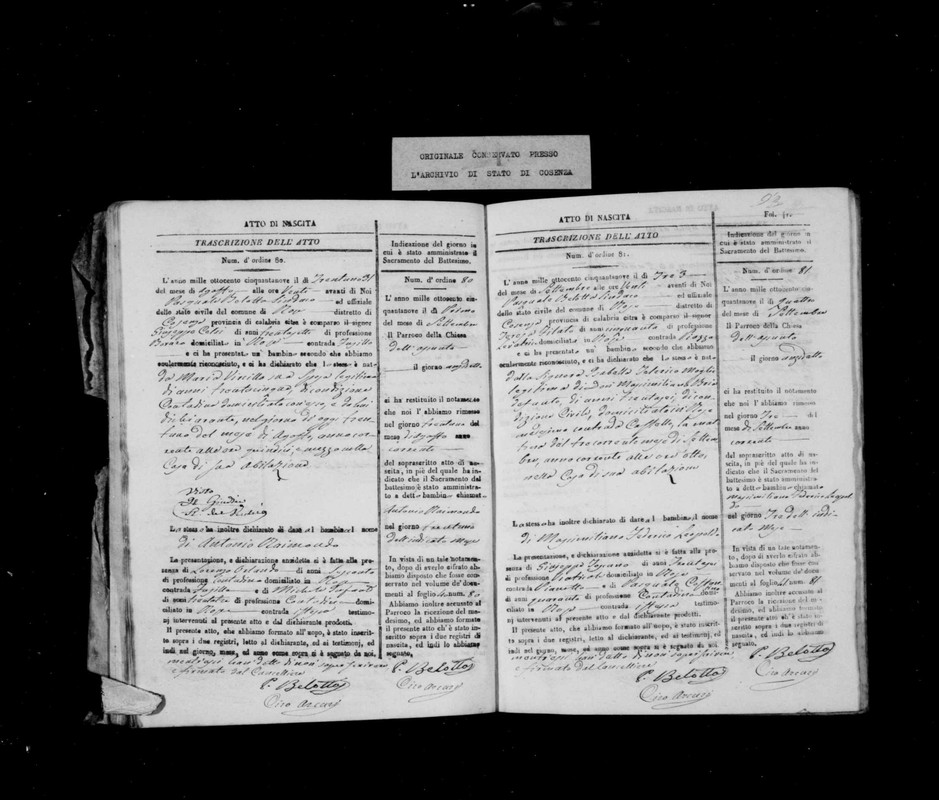 ORIGINALE CONSERVATO PRESSO
L'ARCHIVIO DI STATO DI COSENZA
ATTO DI NASCITA
TRASCRIZIONE DELL'ATTO
Num. d'ordine 80.
L'anno mille ottocento cinquantanove il dì Trentuno 31
del mese di Agosto alle ore venti avanti di Noi
Pasquale Belotta Sindaco ed uffiziale
dello stato civile del comune di distretto di
Cosenza provincia di calabria citra è comparso il signor
Giuseppe di anni di professione
domiciliato in contrada
e ci ha presentato un bambino secondo che abbiamo
ocularmente riconosciuto, e ci ha dichiarato che lo stesso è nato
da Maria sua Sposa legittima
di anni di condizione
Contadina domiciliata
di lui dichiarante, nel giorno di oggi tren
tuno del mese di Agosto, anno cor
rente alle ore quindici, e mezzo nella
Casa di sua abitazione
Visto
Il Giudice
Lo stesso ha inoltre dichiarato di dare al bambino il nome
di Antonio Raimondo
La presentazione, e dichiarazione anzidetta si è fatta alla pre-
senza di Lorenzo di anni
di professione Contadino domiciliato in
contrada e di Michele
di anni trenta di professione Contadino domi-
ciliato in contrada testimo-
nj intervenuti al presente atto e dal dichiarante prodotti.
Il presente atto, che abbiamo formato all'uopo, è stato inscrit-
to sopra i due registri, letto al dichiarante, ed ai testimonj, ed
indi nel giorno, mese, ed anno come sopra si è segnato da noi,
han detto di non sapere scrivere
e firmato dal Cancelliere
P. Belotta
Ciro Arcuri
Indicazione del giorno in
cui è stato amministrato il
Sacramento del Battesimo.
Num. d'ordine 80
L'anno mille ottocento cin-
quantanove il dì Primo
del mese di Settembre
Il Parroco della Chiesa
il giorno anzidetto
ci ha restituito il notamento
che noi l'abbiamo rimesso
nel giorno trentuno del
mese di Agosto anno
corrente
del soprascritto atto di na-
scita, in piè del quale ha in-
dicato che il Sacramento del
battesimo è stato amministra-
to a detto bambino chiamat
Antonio Raimondo
nel giorno trentuno
dell'indicato mese
In vista di un tale notamen-
to, dopo di averlo cifrato
abbiamo disposto che fosse con-
servato nel volume de' docu-
menti al foglio num. 80
Abbiamo inoltre accusato al
Parroco la ricezione del me-
desimo, ed abbiamo formato
il presente atto ch'è stato in-
scritto sopra i due registri di
nascita, ed indi lo abbiamo
segnato,
P. Belotta
Ciro Arcuri
ATTO DI NASCITA
TRASCRIZIONE DELL'ATTO
Num. d'ordine 81.
L'anno mille ottocento cinquantanove il dì Tre 3
del mese di Settembre alle ore venti avanti di Noi
Pasquale Belotta Sindaco ed uffiziale
dello stato civile del comune di distretto di
Cosenza provincia di calabria citra è comparso il signor
di anni cinquanta di professione
domiciliato in contrada
e ci ha presentato un bambino secondo che abbiamo
ocularmente riconosciuto, e ci ha dichiarato che lo stesso è nato
dalla Signora Isabella
di Don Massimiliano
di anni di con
dizione Civile, domiciliata in
contrada Castello,
tina del tre corrente mese di Settem
bre, anno corrente alle ore otto,
nella Casa di sua abitazione
Lo stesso ha inoltre dichiarato di dare al bambino il nome
di Massimiliano Federico Leopoldo
La presentazione, e dichiarazione anzidetta si è fatta alla pre-
senza di Giuseppe di anni
di professione domiciliato in
contrada e di Pasquale
di anni quaranta di professione Contadino domi-
ciliato in contrada testimo-
nj intervenuti al presente atto e dal dichiarante prodotti.
Il presente atto, che abbiamo formato all'uopo, è stato inscrit-
to sopra i due registri, letto al dichiarante, ed ai testimonj, ed
indi nel giorno, mese, ed anno come sopra si è segnato da noi,
han detto di non sapere scrivere
e firmato dal Cancelliere
P. Belotta
Ciro Arcuri
Fol. 41.
Indicazione del giorno in
cui è stato amministrato il
Sacramento del Battesimo.
Num. d'ordine 81
L'anno mille ottocento cin-
quantanove il dì quattro
del mese di Settembre
Il Parroco della Chiesa
il giorno anzidetto
ci ha restituito il notamento
che noi l'abbiamo rimesso
nel giorno Tre del
mese di Settembre
corrente
del soprascritto atto di na-
scita, in piè del quale ha in-
dicato che il Sacramento del
battesimo è stato amministra-
to a detto bambino chiamato
Massimiliano Federico Leopol
do
nel giorno Tre dell'indi
cato mese
In vista di un tale notamen-
to, dopo di averlo cifrato
abbiamo disposto che fosse con-
servato nel volume de' docu-
menti al foglio num. 81
Abbiamo inoltre accusato al
Parroco la ricezione del me-
desimo, ed abbiamo formato
il presente atto ch'è stato in-
scritto sopra i due registri di
nascita, ed indi lo abbiamo
segnato.
P. Belotta
Ciro Arcuri